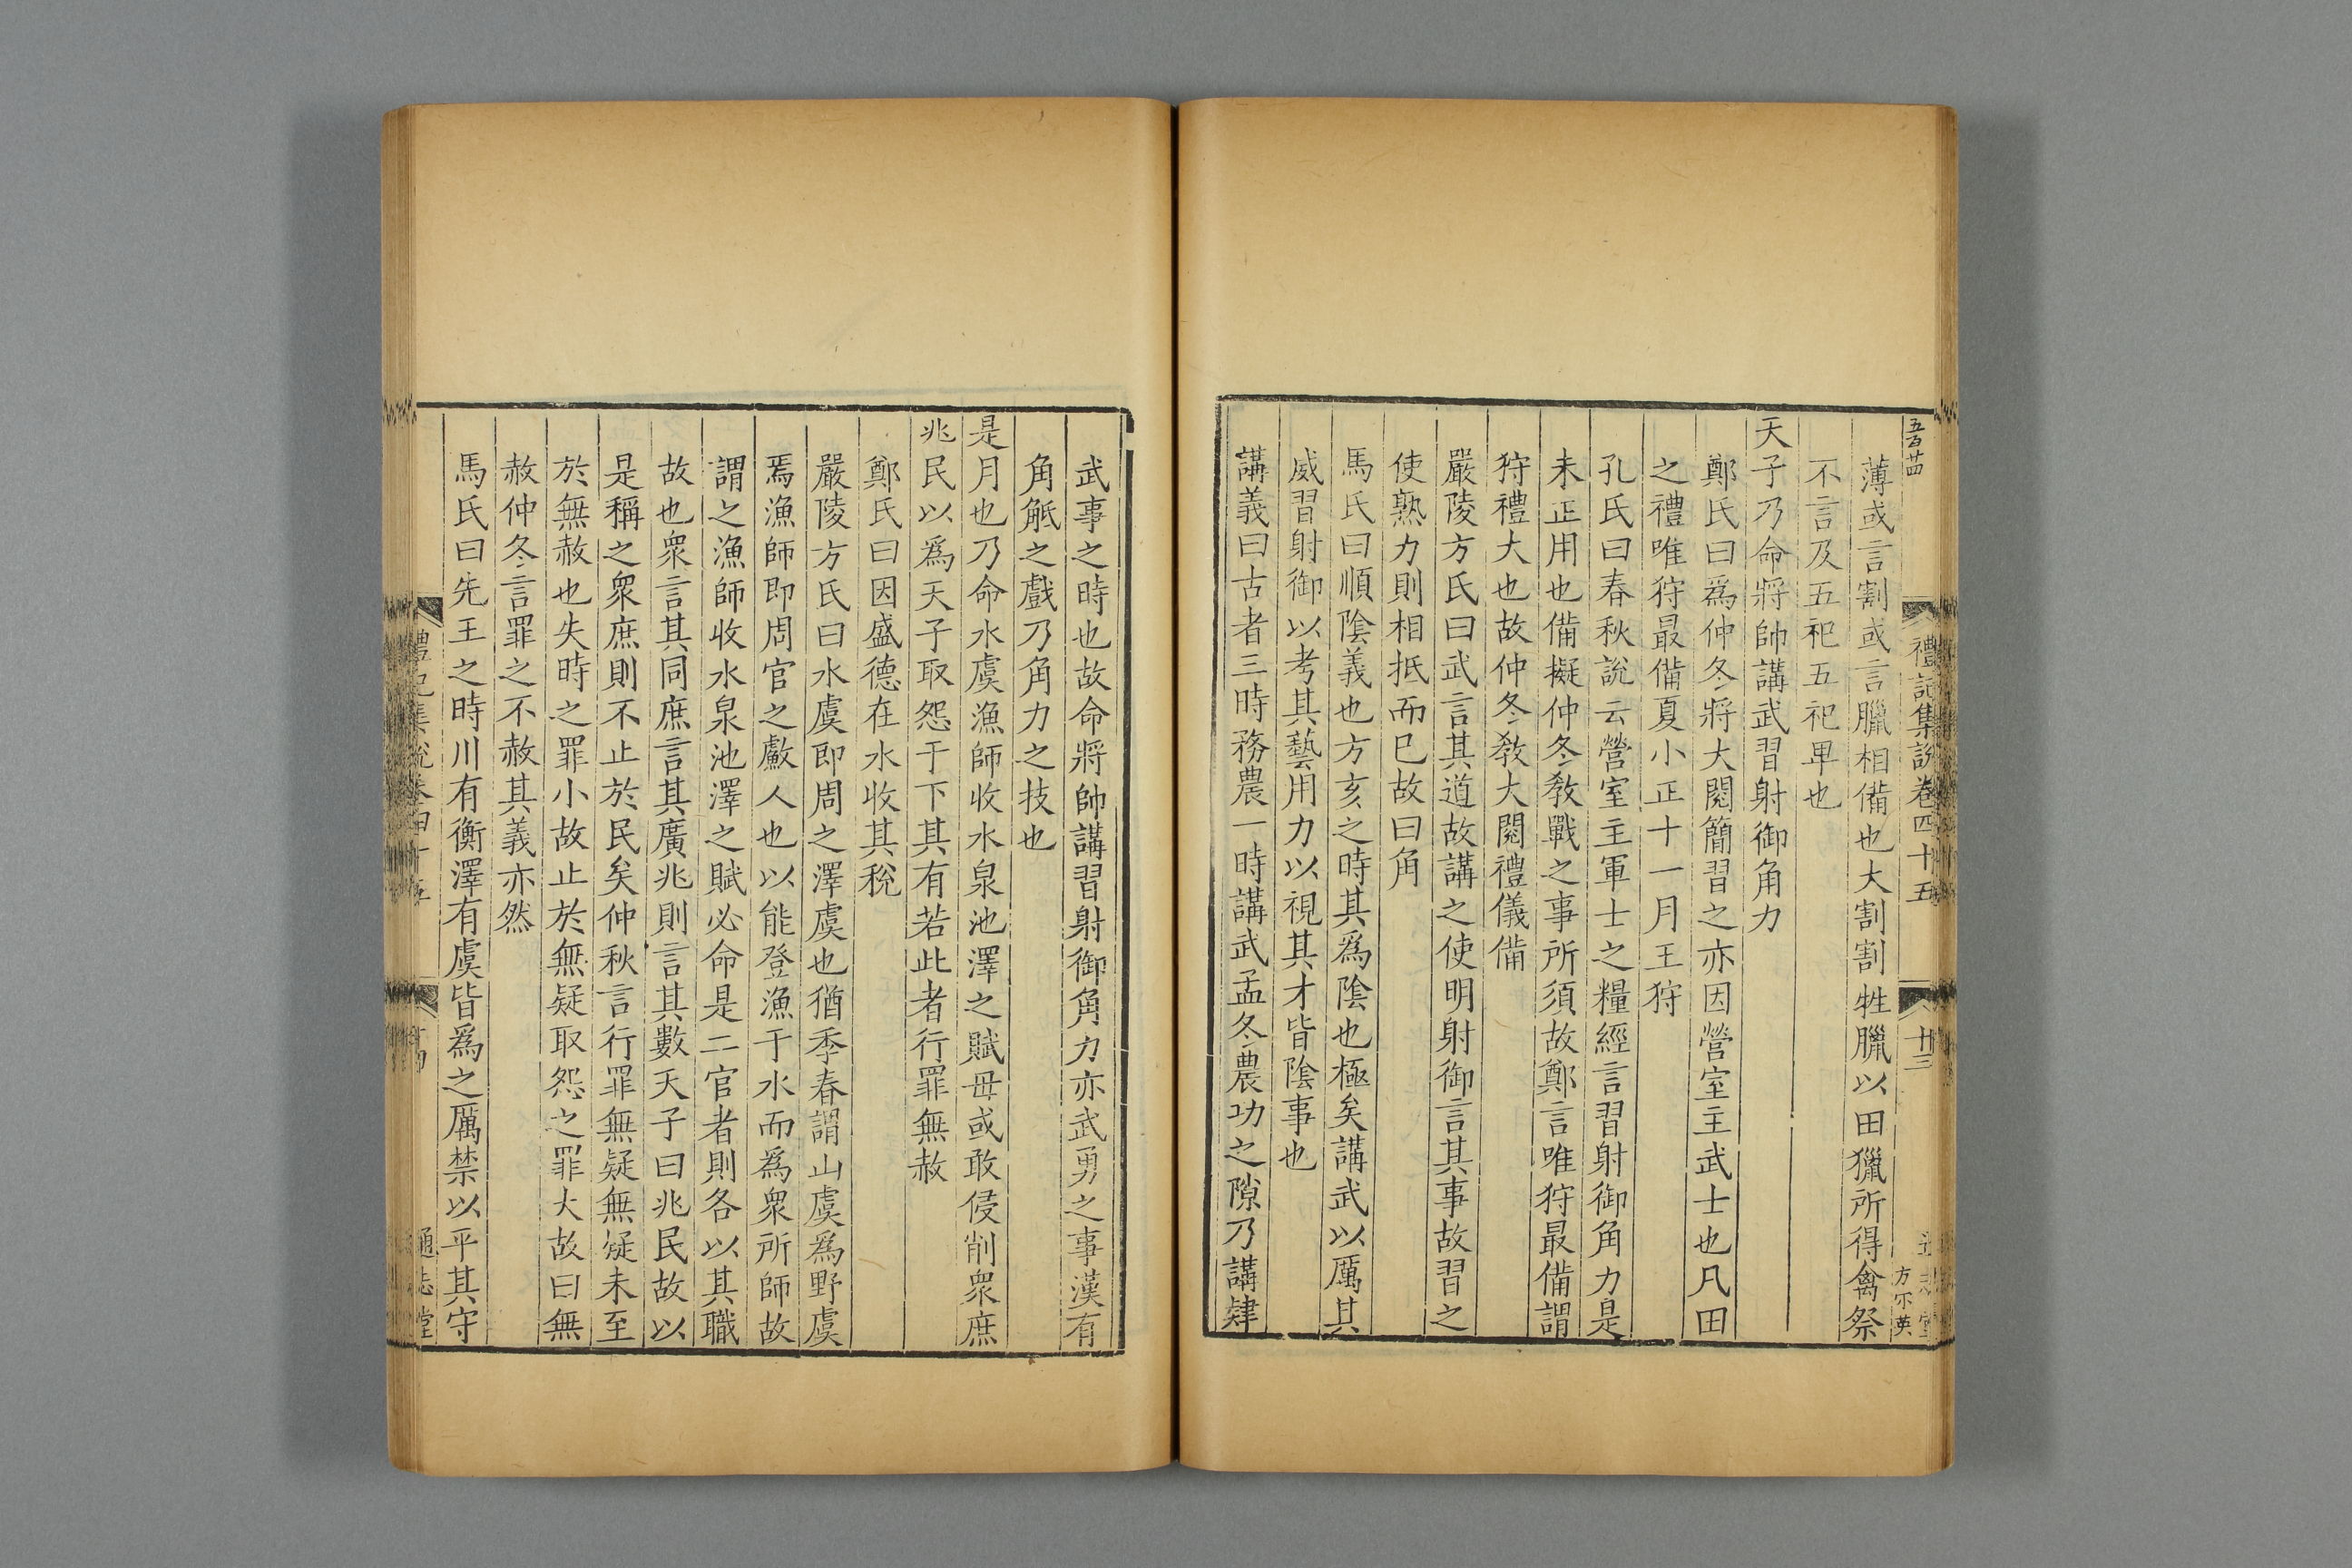 五百廿四
禮記集說卷四十五
廿三
方不英
薄或言割或言臘相備也大割割牲臘以田獵所得禽祭
不言及五祀五祀卑也
天子乃命將帥講武習射御角力
鄭氏曰爲仲冬將大閱簡習之亦因營室主武士也凡田
之禮唯狩最備夏小正十一月王狩
孔氏曰春秋說云營室主軍士之糧經言習射御角力是
未正用也備擬仲冬敎戰之事所須故鄭言唯狩最備謂
狩禮大也故仲冬敎大閱禮儀備
嚴陵方氏曰武言其道故講之使明射御言其事故習之
使熟力則相抵而已故曰角
馬氏曰順陰義也方亥之時其爲陰也極矣講武以厲其
威習射御以考其藝用力以視其才皆陰事也
講義曰古者三時務農一時講武孟冬農功之隙乃講肄
武事之時也故命將帥講習射御角力亦武勇之事漢有
角觝之戲乃角力之技也
是月也乃命水虞漁師收水泉池澤之賦毋或敢侵削衆庶
兆民以爲天子取怨于下其有若此者行罪無赦
鄭氏曰因盛德在水收其稅
嚴陵方氏曰水虞即周之澤虞也猶季春謂山虞爲野虞
焉漁師即周官之䱷人也以能登漁于水而爲衆所師故
謂之漁師收水泉池澤之賦必命是二官者則各以其職
故也衆言其同庶言其廣兆則言其數天子曰兆民故以
是稱之衆庶則不止於民矣仲秋言行罪無疑無疑未至
於無赦也失時之罪小故止於無疑取怨之罪大故曰無
赦仲冬言罪之不赦其義亦然
馬氏曰先王之時川有衡澤有虞皆爲之厲禁以平其守
禮記集說卷四十五
通志堂